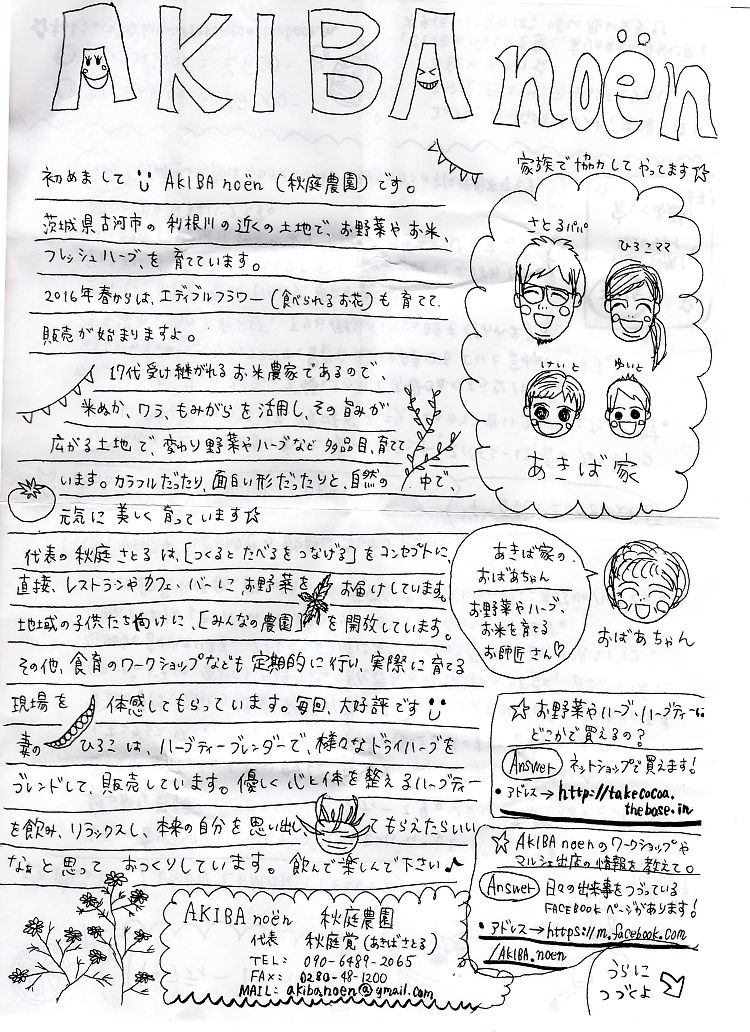 AKIBA noën
初めまして AKIBA noën (秋庭農園)です。
茨城県古河市の 利根川の近くの土地で、お野菜や お米、
フレッシュハーブ、を 育てています。
2016年春からは、エディブルフラワー (食べられるお花)も 育てて、
販売が始まりますよ。
17代受け継がれる お米農家であるので、
米ぬか、ワラ、もみがらを活用し、その旨みが
広がる土地で、変わり野菜やハーブなど 多品目、育てて
います。カラフルだったり、面白い形だったりと、自然の 中で、
元気に 美しく 育っています☆
代表の秋庭 さとる は、[つくると たべるをつなげる] をコンセプトに、
直接、レストランやカフェ・バーに お野菜を お届けしています。
地域の子供たち向けに、[みんなの農園] を開放しています。
その他、食育のワークショップなども 定期的に行い、実際に育てる
現場を 体感してもらっています。毎回、大好評です
妻の ひろこ は、ハーブティーブレンダーで、様々なドライハーブを
ブレンドして、販売しています。優しく 心と体を 整えるハーブティー
を飲み、リラックスし、本来の自分を思い出し てもらえたらいい
なぁ と思って おつくりしています。飲んで楽しんで下さい♪
家族で協力して やってます☆
さとるパパ
ひろこママ
けいと
ゆいと
あきば家
あきば家の
おばあちゃん
お野菜やハーブ、
お米を育てる
お師匠さん♡
おばあちゃん
☆ お野菜やハーブ、ハーブティーは
どこかで買えるの?
Answer ネットショップで買えます!
・アドレス→ http://takecocoa.
thebase.in
☆ AKIBA noenのワークショップや
マルシェ出店の情報を教えて。
Answer 日々の出来事をつづっている
FACEBOOKページがあります!
・アドレス→ https://m.facebook.com
/AKIBA.noen
AKIBA noën 秋庭農園
代表 秋庭覚 (あきばさとる)
TEL: 090-6489-2065
FAX: 0280-48-1200
MAIL: akibanoen@gmail.com
うらに
つづくよ